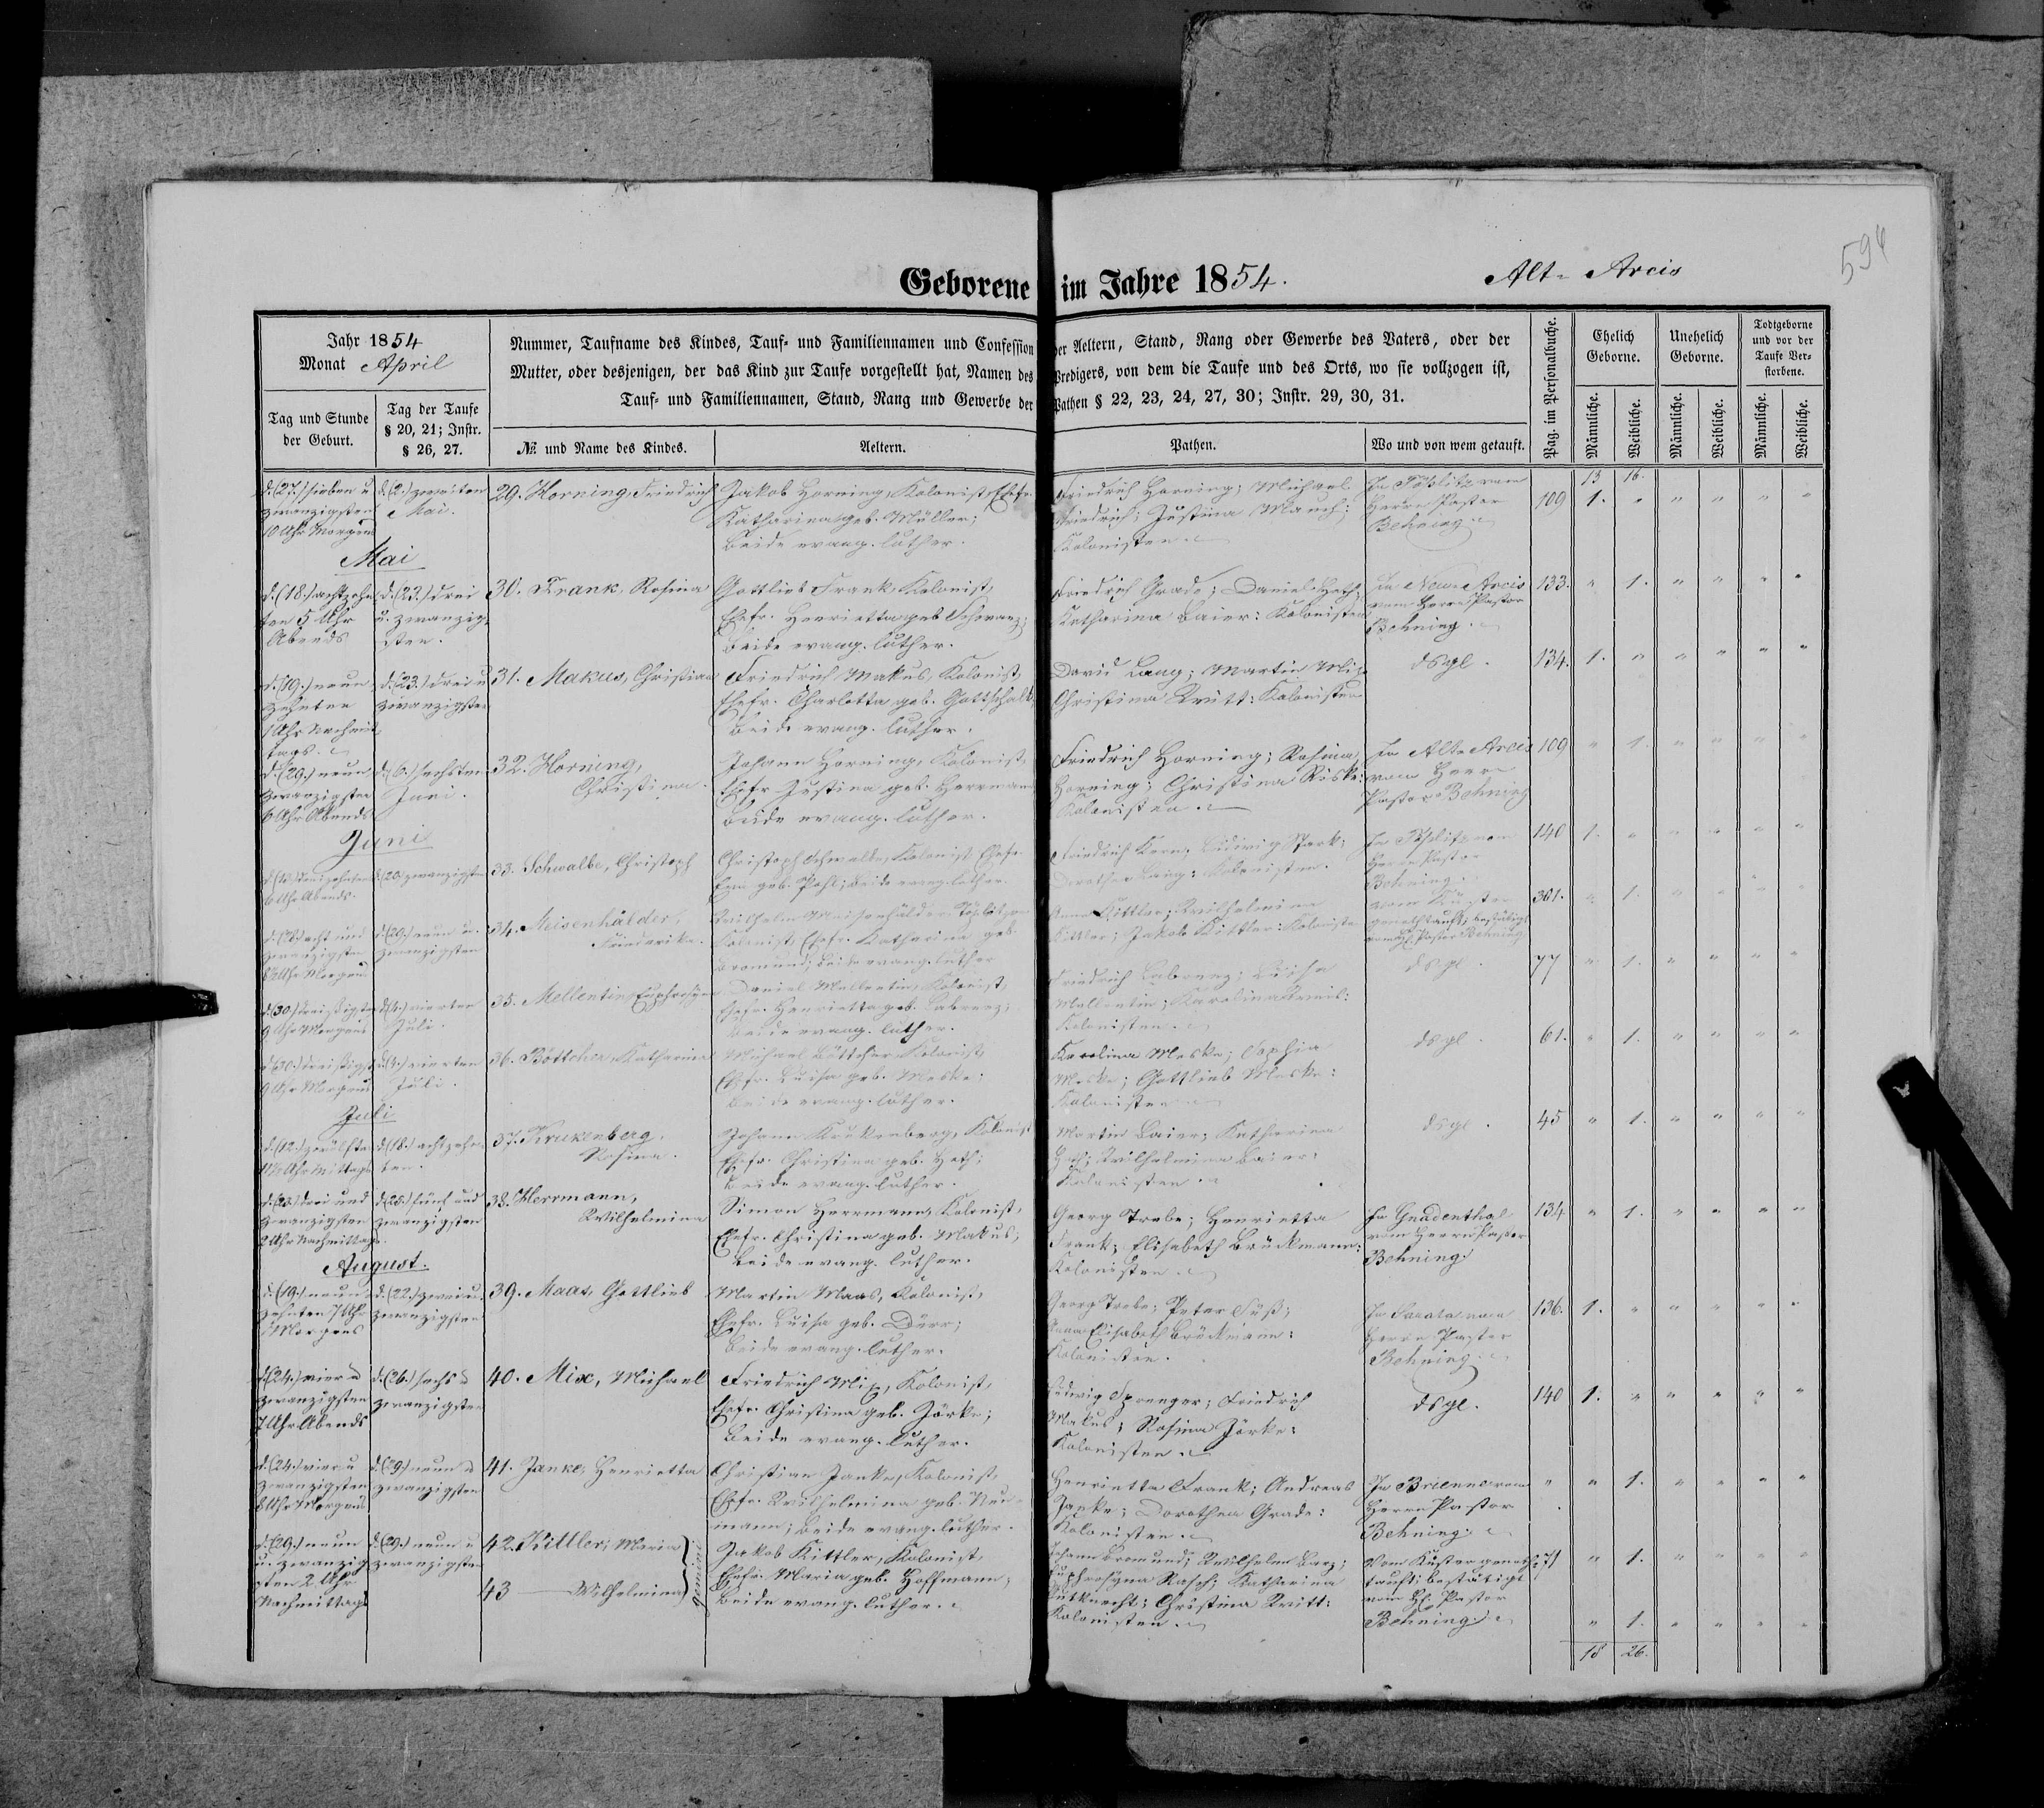 594
Geborene im Jahre 1854.
Alt-Arcis
Jahr 1854
Monat April
Tag und Stunde
der Geburt.
Tag der Taufe
§ 20, 21; Instr.
§ 26, 27.
Nummer, Taufname des Kindes, Tauf- und Familiennamen und Confession der Aeltern, Stand, Rang oder Gewerbe des Vaters, oder der
Mutter, oder desjenigen, der das Kind zur Taufe vorgestellt hat, Namen des Predigers, von dem die Taufe und des Orts, wo sie vollzogen ist,
Tauf- und Familiennamen, Stand, Rang und Gewerbe der Pathen § 22, 23, 24, 27, 30; Instr. 29, 30, 31.
№ und Name des Kindes.
Aeltern.
Pathen.
Wo und von wem getauft.
Pag. im Personalbuche.
Ehelich
Geborne.
Unehelich
Geborne.
Todtgeborne
und vor der
Taufe Ver-
storbene.
Männliche.
Weibliche.
Männliche.
Weibliche.
Männliche.
Weibliche.
13 16.
d. (27.) sieben u
zwanzigsten
10 Uhr Morgens
d. (2.) zweiten
Mai.
29. Horning, Friedrich
Jakob Horning, Kolonist, Ehefr.
Katharina geb. Müller;
beide evang. luther.
Friedrich Horning; Michael
Friedrich; Justina Mauch;
Kolonisten.
In Töplitz vom
Herrn Pastor
Behning
109 1. " " " " "
Mai
d. (18.) achtzehn
ten 5 Uhr
Abends
d. (23.) drei
u. zwanzig
sten.
30. Frank, Rosina
Gottlieb Frank, Kolonist,
Ehefr. Henrietta geb. Schwarz;
beide evang. luther.
Friedrich Grade; Daniel Hoth;
Katharina Baier: Kolonisten
In Neu-Arcis
vom Herrn Pastor
Behning.
133. " 1. " " " "
d. (19.) neun
zehnten
1 Uhr Nachmit
tags.
d. (23.) drei u
zwanzigsten
31. Makus, Christian
Friedrich Makus, Kolonist,
Ehefr. Charlotta geb. Gottschalk,
beide evang. luther.
David Lang; Martin Mix
Christina Witt: Kolonisten
dsgl.
134. 1. " " " " "
d. (29.) neun
zwanzigsten
6 Uhr Abends
d. (6.) sechsten
Juni.
32. Horning,
Christina.
Johann Horning, Kolonist,
Ehefr. Justina geb. Herrmann
beide evang. luther.
Friedrich Horning; Rosina
Horning; Christina Röske:
Kolonisten.
In Alt-Arcis
vom Herrn
Pastor Behning
109 " 1. " " " "
Juni
6 Uhr Abends.
d. (20.) zwanzigst
33. Schwalbe, Christoph
Christoph Schwalbe, Kolonist, Ehefr.
Eva geb. Pohl; beide evang. luther.
Friedrich Kern; Ludwig Stark;
Dorothea Lang: Kolonisten.
In Töplitz vom
Herrn Pastor
Behning.
140 1. " " " " "
d. (28.) acht und
zwanzigsten
8 Uhr Morgens
d. (29.) neun u.
zwanzigsten
34. Meisenhälder,
Friederike.
Wilhelm Meisenhälder, Töplitzer
Kolonist, Ehefr. Katharina geb.
Bromund; beide evang. luther
Anna Kittler; Wilhelmine
Kittler; Jakob Kittler: Koloniste
vom Küster
genothtauft; bestätigt
vom H. Pastor Behning
361. " 1. " " " "
d. (30.) dreißigsten
9 Uhr Morgens
d. (4.) vierten
Juli.
35. Mellentin, Euphrosyne
Daniel Mellentin, Kolonist,
Ehefr. Henrietta geb. Labrenz;
beide evang. luther.
Friedrich Labrenz; Luisa
Mellentin; Karolina
Kolonisten.
dsgl.
77 " 1. " " " "
d. (30.) dreißigst
9 Uhr Morgens
d. (4.) vierten
Juli.
36. Böttcher, Katharina
Michael Böttcher, Kolonist,
Ehefr. Luisa geb. Meske;
beide evang. luther.
Karolina Meske; Sophia
Meske; Gottlieb Meske:
Kolonisten
dsgl.
61. " 1. " " " "
Juli
d. (12.) zwölften
11½ Uhr Mittags
d. (18.) achtzehn
ten.
37. Krukenberg,
Rosina.
Johann Krukenberg, Kolonist
Ehefr. Christina geb. Hoth;
beide evang. luther.
Martin Baier; Katharina
Hoth; Wilhelmina Baier:
Kolonisten
dsgl.
45 " 1. " " " "
d. (23.) drei und
zwanzigsten
2 Uhr Nachmittags.
d. (25.) fünf und
zwanzigsten
38. Herrmann,
Wilhelmina
Simon Herrmann, Kolonist,
Ehefr. Christina geb. Makus;
beide evang. luther.
Georg Trebe; Henrietta
Frank; Elisabeth Brückmann:
Kolonisten.
In Gnadenthal
vom Herrn Pastor
Behning
134 " 1. " " " "
August.
d. (19.) neun
zehnten 7 Uhr
Morgens
d. (22.) zwei u.
zwanzigsten
39. Maas, Gottlieb
Martin Maas, Kolonist,
Ehefr. Luisa geb. Dürr;
beide evang. luther.
Georg Trebe; Peter Süß;
Anna Elisabeth Brückmann:
Kolonisten.
In Sarata vom
Herrn Pastor
Behning.
136. 1. " " " " "
d. (24.) vier u
zwanzigsten
7 Uhr Abends
d. (26.) sechs u
zwanzigsten
40. Mix, Michael
Friedrich Mix, Kolonist,
Ehefr. Christina geb. Jörke;
beide evang. luther.
Ludwig Sprenger; Friedrich
Makus; Rosina Jörke:
Kolonisten.
dsgl.
140 1. " " " " "
d. (24.) vier u
zwanzigsten
8 Uhr Morgens
d. (29.) neun u
zwanzigsten
41. Janke, Henrietta
Christian Janke, Kolonist,
Ehefr. Wilhelmina geb. Neu-
mann; beide evang. luther.
Henrietta Frank; Andreas
Janke; Dorothea Grade:
Kolonisten.
In Brienne vom
Herrn Pastor
Behning.
" " 1. " " " "
d. (29.) neun
u. zwanzig
sten 2 Uhr
Nachmittags
d. (29.) neun u
zwanzigsten
42. Kittler, Maria
43 — Wilhelmina
gemini
Jakob Kittler, Kolonist,
Ehefr. Maria geb. Hoffmann;
beide evang. luther.
Johann Bromund; Wilhelm Barz;
Euphrosyna Rasch; Katharina
Gutknecht; Christina Witt:
Kolonisten.
Vom Küster genoth-
tauft; bestätigt
vom H. Pastor
Behning.
71 " 1. " " " "
" 1. " " " "
18 26.